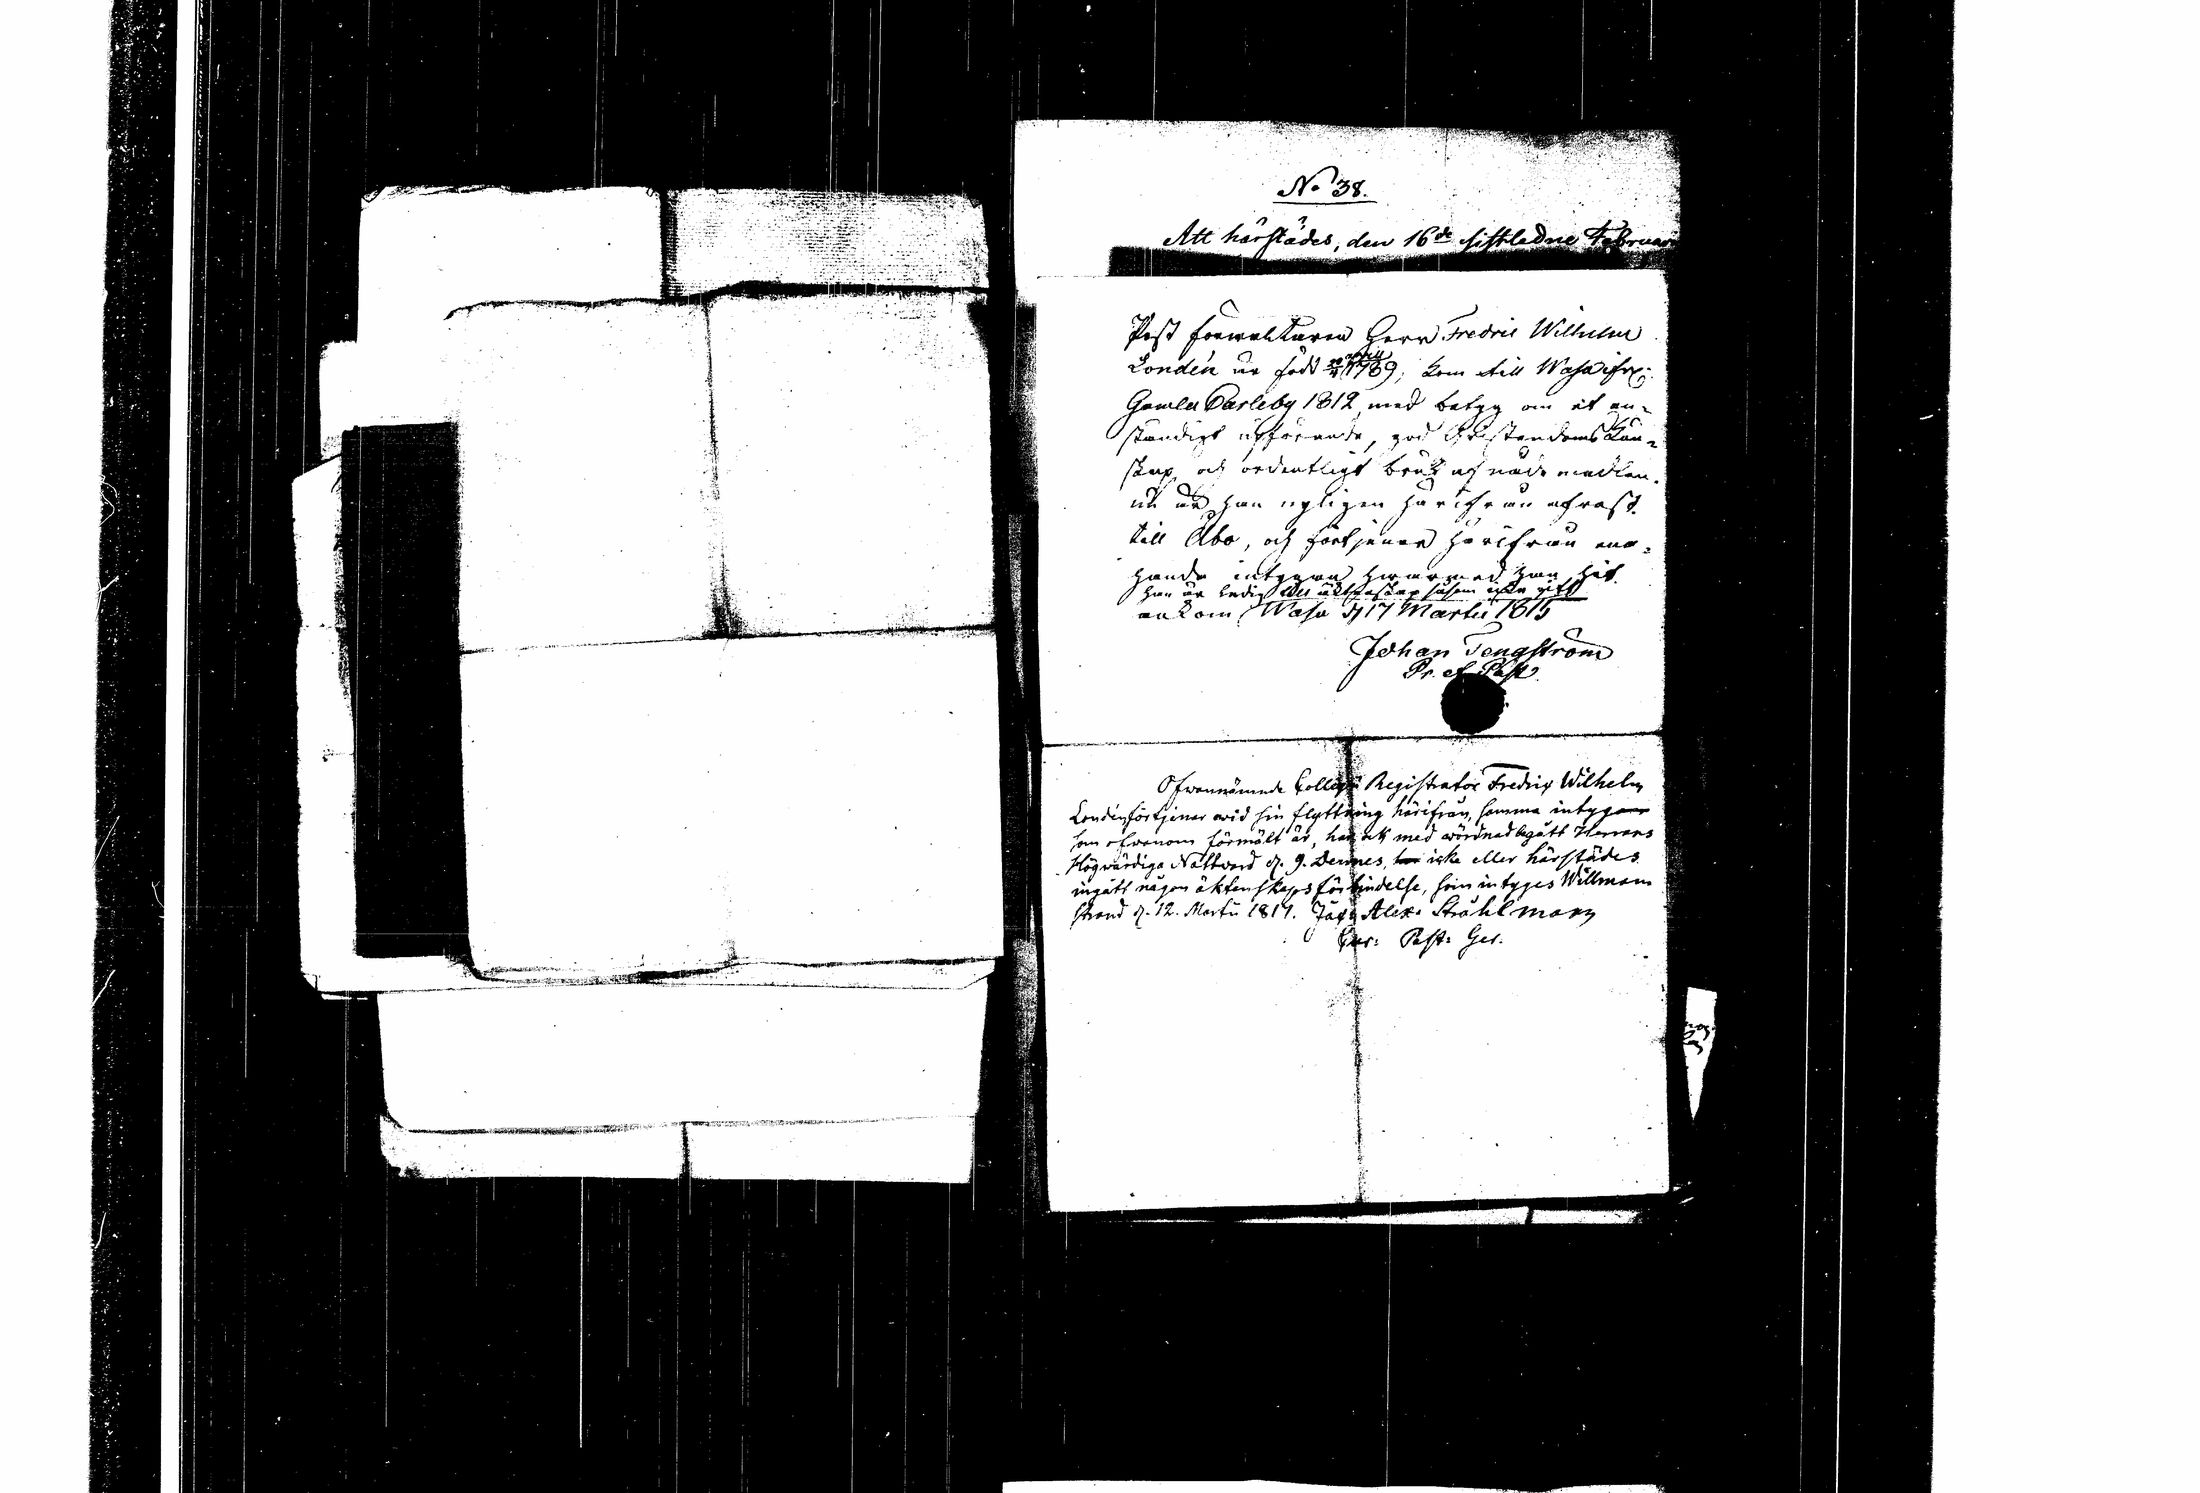 No 38.
Att härstädes, den 16de sistledne Februar
Post Förwaltaren Herr Fredric Wilhelm
Londén är född 1789; kom till Wasa ifr:
Gamla Carleby 1812, med betyg om et an-
ständigt upförande, god Christendoms Kun-
skap, och ordentligt bruk af nåde medlen.
nu är han nyligen härifrån afrest
till Åbo, och förtjenar härifrån ena-
handa intygan hwarmed han hit
han är ledig till äktenskap såsom icke gift
ankom, Wasa d 17 Martii 1815
Johan Tengström
Pr. et Past.
Ofwannämnde Collegii Registrator Fredrix Wilhelm
Londén förtjenar wid sin flyttning härifrån, samma intygan
som ofwanom förmält är, har ock med wördnad begått Herrans
Högwärdiga Nattward d. 9. Dennes, icke eller härstädes
ingått någon äktenskaps förbindelse, som intyges Willman
strand d. 12. Martii 1817. Alex. Stråhlman
Past: